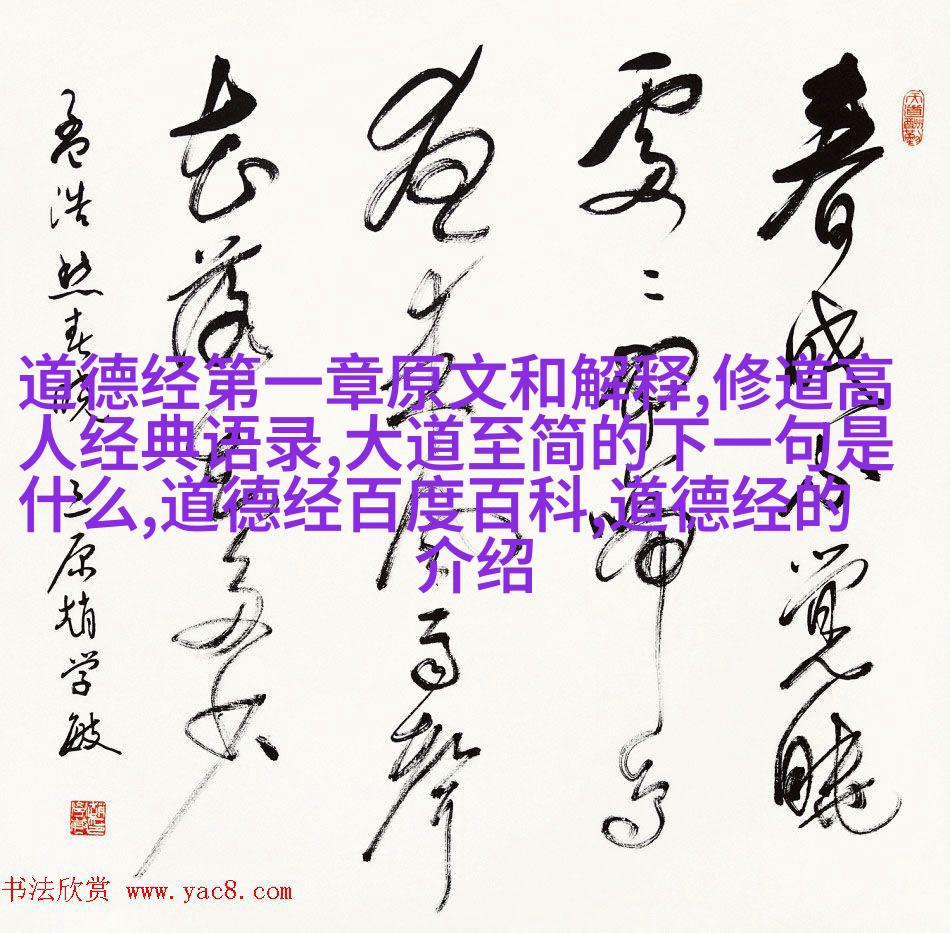 春眠不觉晓
处处闻啼鸟
夜来风雨声
花落知多少
孟浩然春晓 三原赵学敏
天道酬勤
道德经第一章原文和解释,修道高
人经典语录,大道至简的下一句是
什么,道德经百度百科,道德经的
介绍
书法欣赏 www.yac8.com